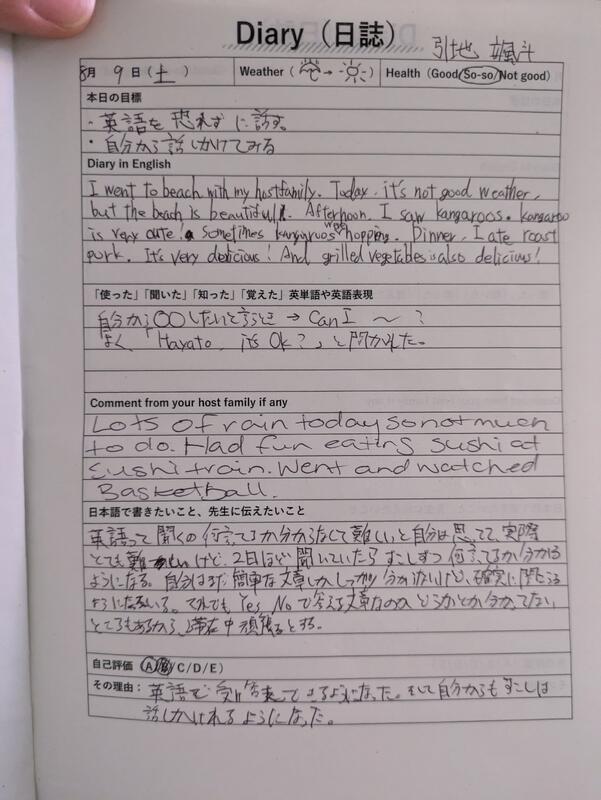 Diary（日誌）
引地 颯斗
8月 9日（土） Weather（ → ） Health（Good/So-so/Not good）
本日の目標
・英語を恐れずに話す。
・自分から話しかけてみる
Diary in English
I went to beach with my hostfamily. Today, it's not good weather,
but the beach is beautiful!. Afternoon, I saw kangaroos. kangaroo
is very cute! Sometimes kanguruos were hopping. Dinner, I ate roast
pork. It's very delicious! And grilled vegetables is also delicious!
「使った」「聞いた」「知った」「覚えた」英単語や英語表現
自分から〇〇したいと言うとき → Can I ～ ?
よく、「Hayato, it's Ok?」と聞かれた。
Comment from your host family if any
Lots of rain today so not much
to do. Had fun eating sushi at
sushi train. Went and watched
Basketball.
日本語で書きたいこと、先生に伝えたいこと
英語って聞くの何言ってるか分からなくて難しいと自分は思ってて、実際
とても難しいけど、2日ほど聞いていたらすこしずつ何言ってるか分かる
ようになる。自分はまだ簡単な文章しかしっかり分かんないけど、確実に聞こえる
ようになっている。それでも Yes, No で答える文章なのかどうかとか分かってない
ところもあるから、滞在中頑張るとする。
自己評価（A/B/C/D/E）
その理由：英語で受け答えできるようになった。そして自分からもすこしは
話しかけれるようになった。